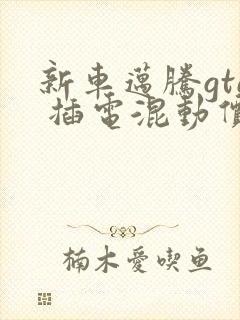 新車邁騰gte
插電混動價
楠木愛喫鱼